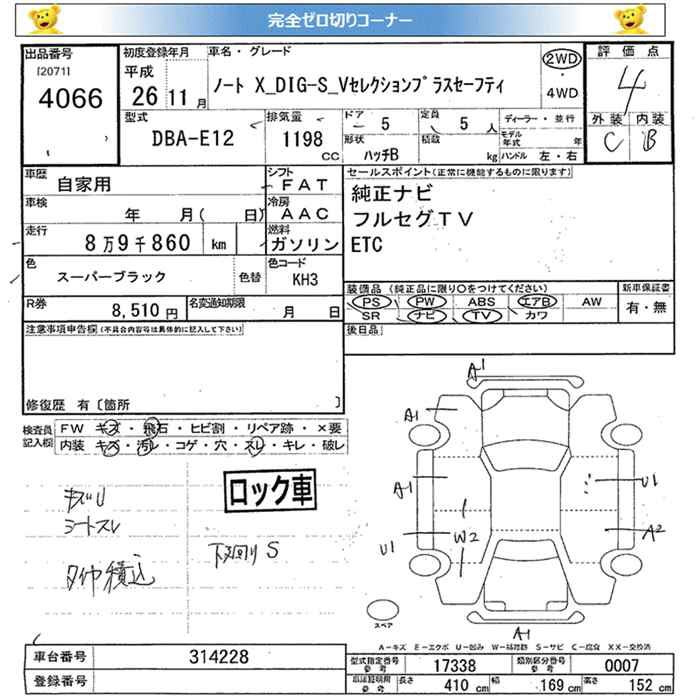 完全ゼロ切りコーナー
出品番号
[2071]
4066
初度登録年月
平成
26 11月
車名・グレード
ノート X_DIG-S_Vセレクションプラスセーフティ
2WD
・
4WD
評価点
4
外装 内装
C B
型式
DBA-E12
排気量
1198
cc
ドア
5
形状
ハッチB
定員
5 人
積載
kg
ディーラー・並行
モデル年式 年
ハンドル 左・右
車歴
自家用
シフト
FAT
車検
年 月( 日)
冷房
AAC
走行
8万9千860 km
燃料
ガソリン
色
スーパーブラック
色替
色コード
KH3
R券
8,510 円
名変通知期限
月 日
セールスポイント(正常に機能するものに限ります)
純正ナビ
フルセグTV
ETC
装備品(純正品に限り○をつけてください)
PS PW ABS エアB AW
SR ナビ TV カワ
新車保証書
有・無
後日品
注意事項申告欄(不具合内容等は具体的に記入して下さい)
修復歴 有〔箇所
検査員記入欄
FW キズ・飛石・ヒビ割・リペア跡・×要
内装 キズ・汚レ・コゲ・穴・スレ・キレ・破レ
ロック車
キズU
シートスレ
下回り S
タイヤ積込
A1
A1
A1
U1
W2
U1
A2
A1
スペア
A-キズ E-エクボ U-凹み W-補修跡 S-サビ C-腐食 XX-交換済
車台番号
314228
登録番号
型式指定番号
参考
17338
類別区分番号
参考
0007
車庫証明用
参考
長さ 410 cm 幅 169 cm 高さ 152 cm